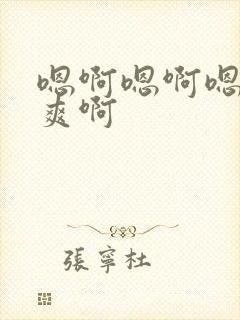 嗯啊嗯啊嗯
爽啊
張寧杜